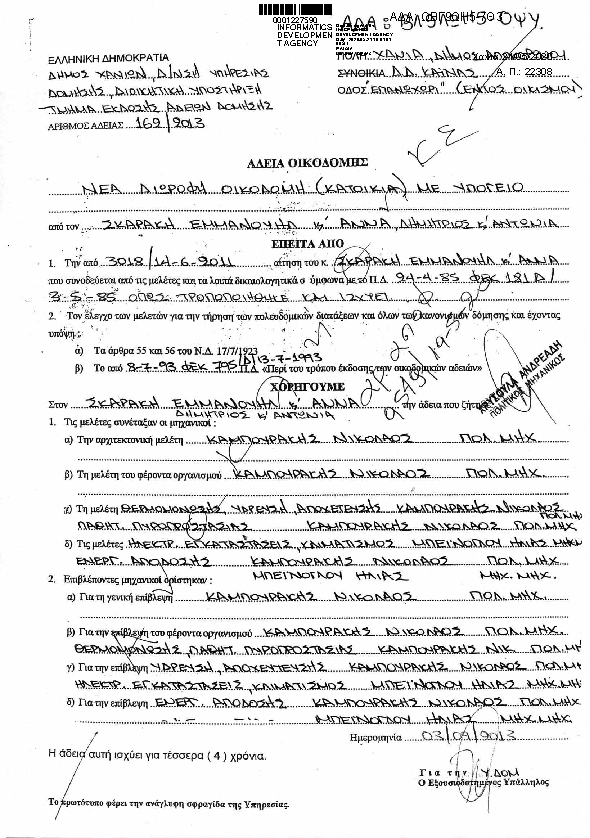 0001227590
INFORMATICS
DEVELOPMEN
T AGENCY
ΑΔΑ:
ΕΛΛΗΝΙΚΗ ΔΗΜΟΚΡΑΤΙΑ
ΔΗΜΟΣ ΧΑΝΙΩΝ, Δ/ΝΣΗ ΥΠΗΡΕΣΙΑΣ
ΔΟΜΗΣΗΣ, ΔΙΟΙΚΗΤΙΚΗ ΥΠΟΣΤΗΡΙΞΗ
ΤΜΗΜΑ ΕΚΔΟΣΗΣ ΑΔΕΙΩΝ ΔΟΜΗΣΗΣ
ΑΡΙΘΜΟΣ ΑΔΕΙΑΣ 169/2013
ΠΟΛΗ ΧΑΝΙΑ, ΔΗΜΟΣ
ΣΥΝΟΙΚΙΑ Δ.Δ. Α. Π.: 22308
ΟΔΟΣ "ΕΠΑΝΩΧΩΡΙ" (ΕΝΤΟΣ ΟΙΚΙΣΜΟΥ)
ΑΔΕΙΑ ΟΙΚΟΔΟΜΗΣ
ΝΕΑ ΔΙΩΡΟΦΗ ΟΙΚΟΔΟΜΗ (ΚΑΤΟΙΚΙΑ) ΜΕ ΥΠΟΓΕΙΟ
από τον ΣΚΑΡΑΚΗ ΕΜΜΑΝΟΥΗΛ & ΑΝΝΑ, ΔΗΜΗΤΡΙΟΣ & ΑΝΤΩΝΙΑ
ΕΠΕΙΤΑ ΑΠΟ
1. Την από 3018/14-6-2011 αίτηση του κ. ΣΚΑΡΑΚΗ ΕΜΜΑΝΟΥΗΛ & ΑΝΝΑ
που συνοδεύεται από τις μελέτες και τα λοιπά δικαιολογητικά σύμφωνα με το Π.Δ. 24-4-85 ΦΕΚ 181 Δ/
3-5-85 ΟΠΩΣ ΤΡΟΠΟΠΟΙΗΘΗΚΕ ΚΑΙ ΙΣΧΥΕΙ
2. Τον έλεγχο των μελετών για την τήρηση των πολεοδομικών διατάξεων και όλων των κανονισμών δόμησης και έχοντας
υπόψη :
α) Τα άρθρα 55 και 56 του Ν.Δ. 17/7/1923
β) Το από 8-7-93 ΦΕΚ 795/Δ/13-7-1993 Π.Δ. «Περί του τρόπου έκδοσης των οικοδομικών αδειών»
ΧΟΡΗΓΟΥΜΕ
ΧΡΥΣΟΥΛΑ ΑΝΔΡΕΑΔΗ
ΠΟΛΙΤΙΚΟΣ ΜΗΧΑΝΙΚΟΣ
Στον ΣΚΑΡΑΚΗ ΕΜΜΑΝΟΥΗΛ & ΑΝΝΑ την άδεια που ζητά
ΔΗΜΗΤΡΙΟΣ & ΑΝΤΩΝΙΑ
1. Τις μελέτες συνέταξαν οι μηχανικοί :
α) Την αρχιτεκτονική μελέτη ΚΑΜΠΟΥΡΑΚΗΣ ΝΙΚΟΛΑΟΣ ΠΟΛ. ΜΗΧ.
β) Τη μελέτη του φέροντα οργανισμού ΚΑΜΠΟΥΡΑΚΗΣ ΝΙΚΟΛΑΟΣ ΠΟΛ. ΜΗΧ.
γ) Τη μελέτη ΘΕΡΜΟΜΟΝΩΣΗΣ, ΥΔΡΕΥΣΗ, ΑΠΟΧΕΤΕΥΣΗΣ ΚΑΜΠΟΥΡΑΚΗΣ ΝΙΚΟΛΑΟΣ ΠΟΛ.ΜΗΧ
ΠΑΘΗΤ. ΠΥΡΟΠΡΟΣΤΑΣΙΑΣ ΚΑΜΠΟΥΡΑΚΗΣ ΝΙΚΟΛΑΟΣ ΠΟΛ.ΜΗΧ
δ) Τις μελέτες ΗΛΕΚΤΡ. ΕΓΚΑΤΑΣΤΑΣΕΙΣ, ΚΛΙΜΑΤΙΣΜΟΣ ΜΠΕΙΝΟΓΛΟΥ ΗΛΙΑΣ
ΕΝΕΡΓ. ΑΠΟΔΟΣΗΣ ΚΑΜΠΟΥΡΑΚΗΣ ΝΙΚΟΛΑΟΣ ΠΟΛ. ΜΗΧ.
2. Επιβλέποντες μηχανικοί ορίστηκαν : ΜΠΕΙΝΟΓΛΟΥ ΗΛΙΑΣ ΜΗΧ. ΜΗΧ.
α) Για τη γενική επίβλεψη ΚΑΜΠΟΥΡΑΚΗΣ ΝΙΚΟΛΑΟΣ ΠΟΛ. ΜΗΧ.
β) Για την επίβλεψη του φέροντα οργανισμού ΚΑΜΠΟΥΡΑΚΗΣ ΝΙΚΟΛΑΟΣ ΠΟΛ. ΜΗΧ.
ΘΕΡΜΟΜΟΝΩΣΗΣ, ΠΑΘΗΤ. ΠΥΡΟΠΡΟΣΤΑΣΙΑΣ ΚΑΜΠΟΥΡΑΚΗΣ ΝΙΚ. ΠΟΛ. ΜΗ
γ) Για την επίβλεψη ΥΔΡΕΥΣΗ, ΑΠΟΧΕΤΕΥΣΗΣ ΚΑΜΠΟΥΡΑΚΗΣ ΝΙΚΟΛΑΟΣ ΠΟΛ. ΜΗ
ΗΛΕΚΤΡ. ΕΓΚΑΤΑΣΤΑΣΕΙΣ, ΚΛΙΜΑΤΙΣΜΟΣ ΜΠΕΙΝΟΓΛΟΥ ΗΛΙΑΣ ΜΗΧ.ΜΗ
δ) Για την επίβλεψη ΕΝΕΡΓ. ΑΠΟΔΟΣΗΣ ΚΑΜΠΟΥΡΑΚΗΣ ΝΙΚΟΛΑΟΣ ΠΟΛ. ΜΗΧ.
ΜΠΕΙΝΟΓΛΟΥ ΗΛΙΑΣ ΜΗΧ. ΜΗΧ.
Ημερομηνία 03/09/2013
Η άδεια αυτή ισχύει για τέσσερα ( 4 ) χρόνια.
Για την Υ.ΔΟΜ
Ο Εξουσιοδοτημένος Υπάλληλος
Το πρωτότυπο φέρει την ανάγλυφη σφραγίδα της Υπηρεσίας.